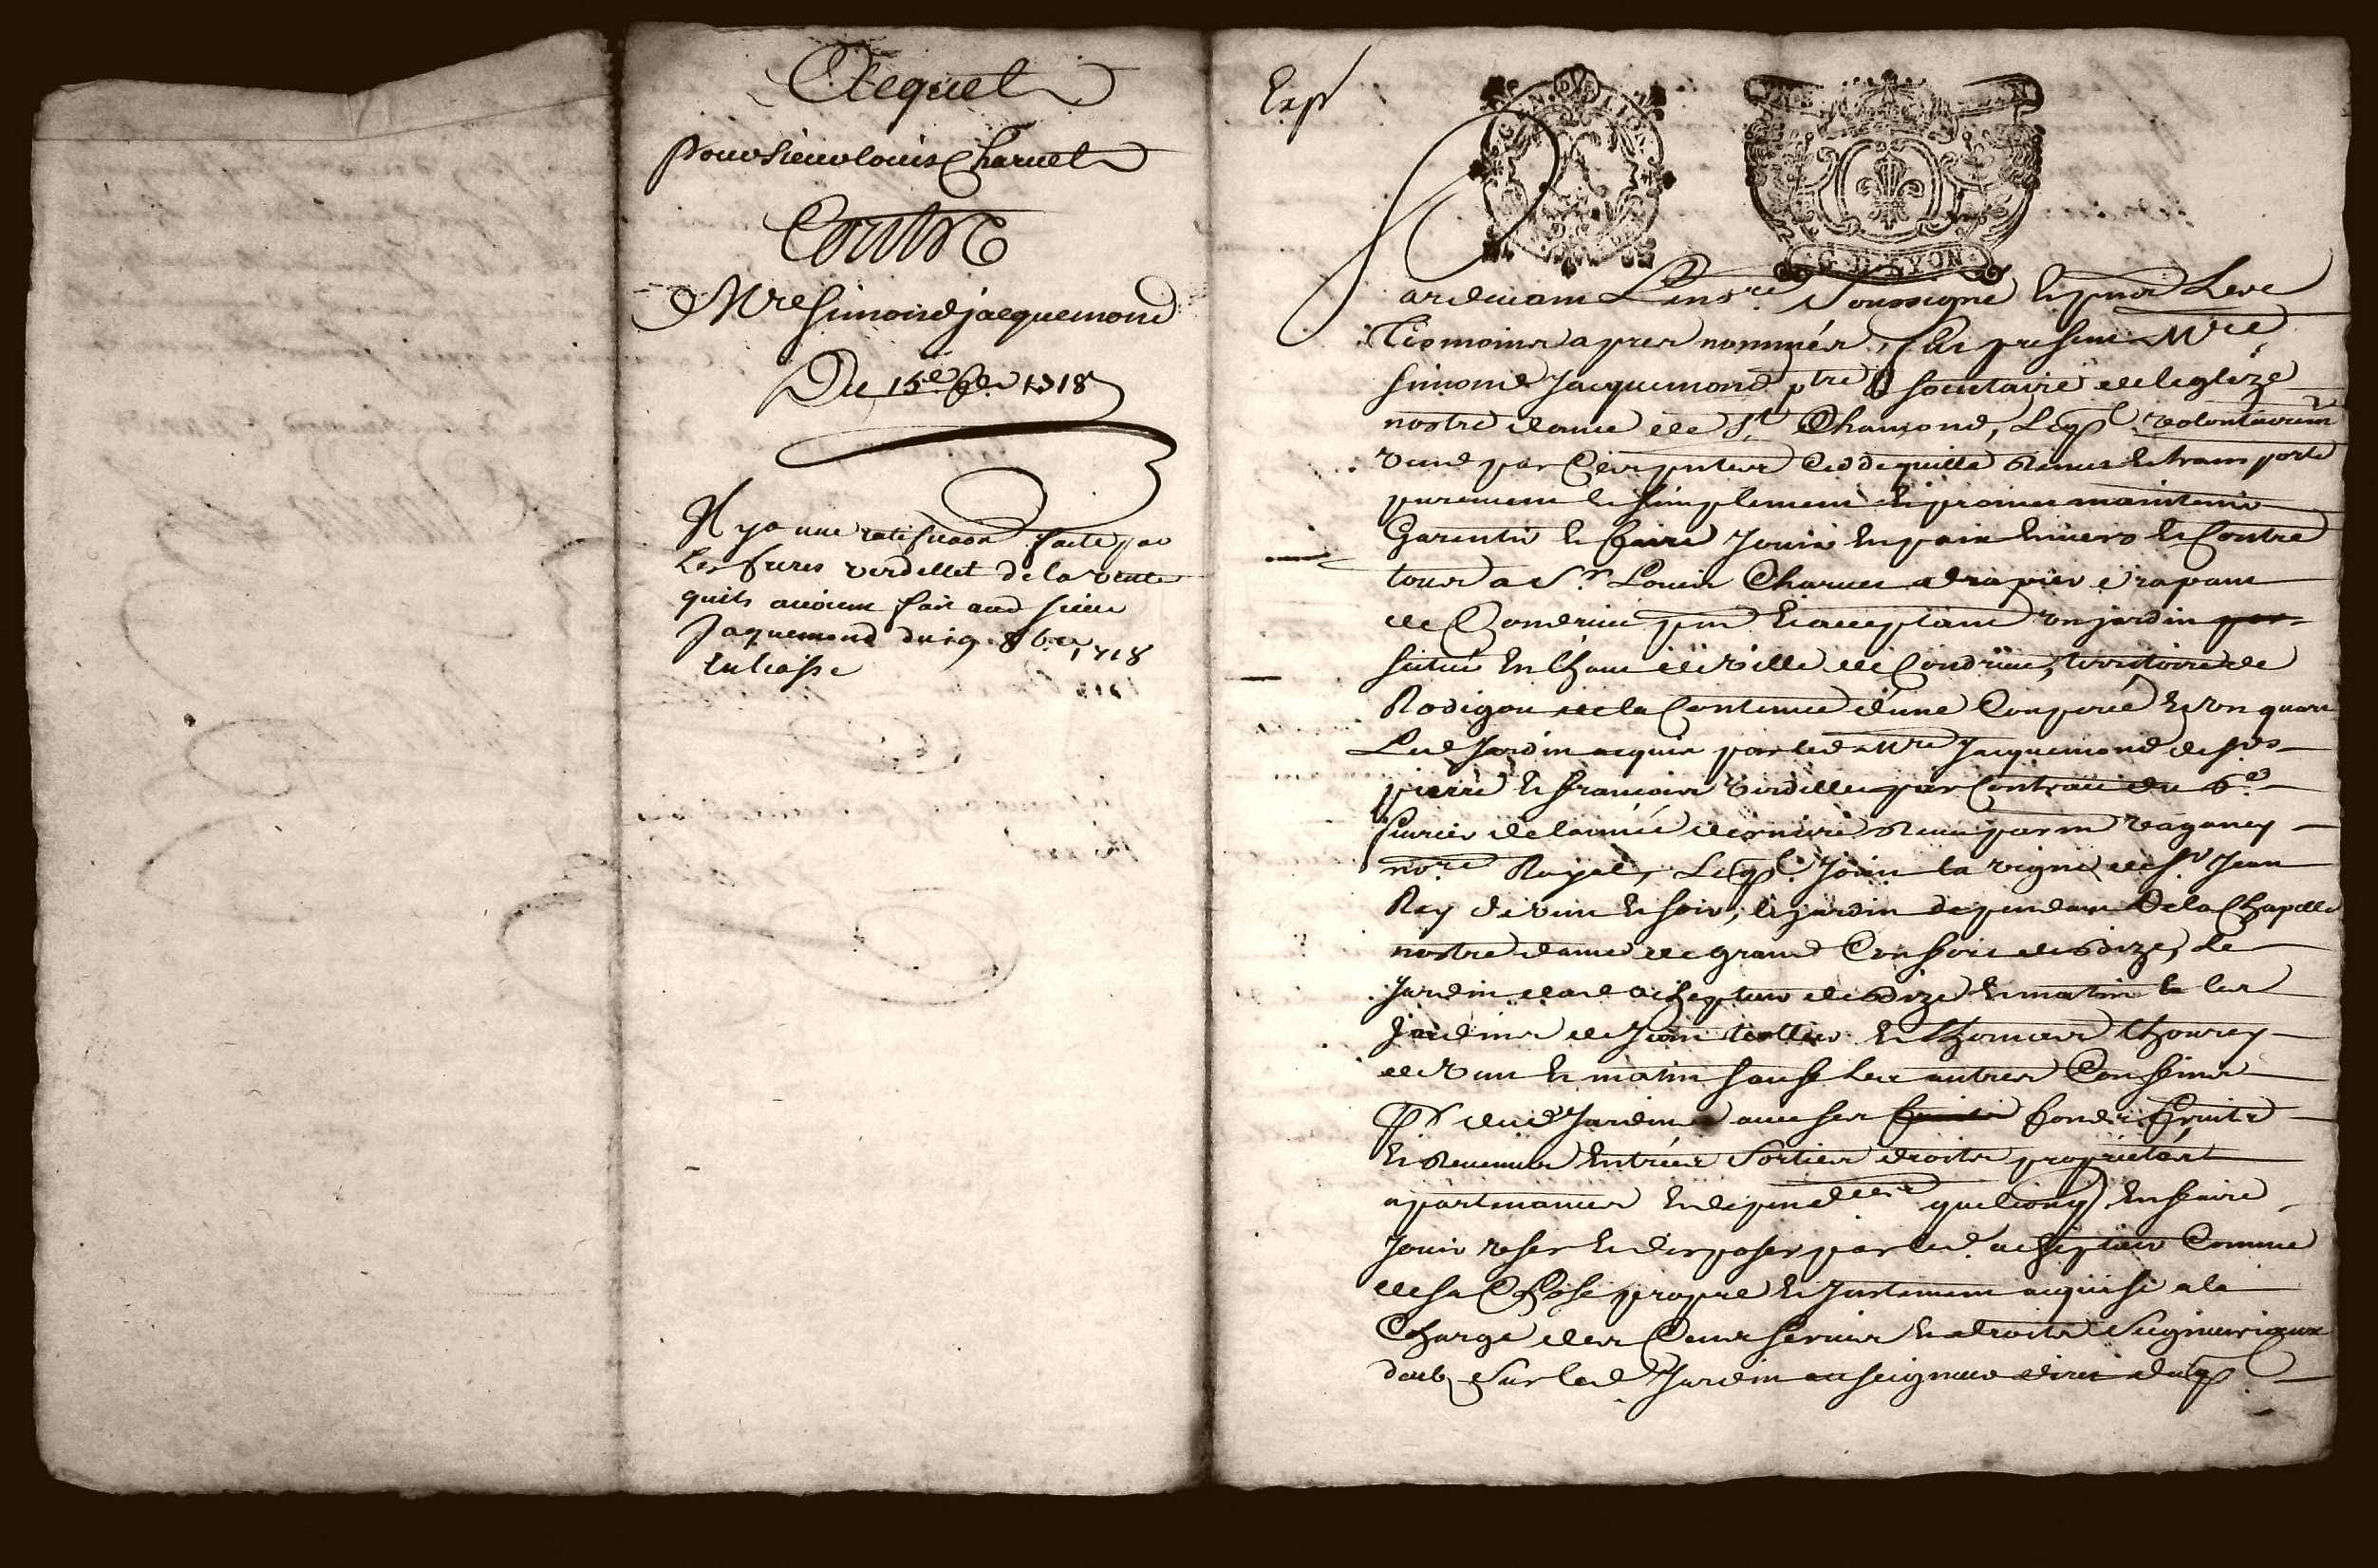 Acquet
pour sieur louis Charuet
Contre
Mre Simond jacquemond
Du 15e 1718
Il y a une ratification faite par
les freres verdellet de la vente
quils auoient fait aud sieur
Jaquemond du 19 8bre 1718
en liasse
Exp
G. D. LYON
Pardeuant Le nore Soussigné et pnce des
tesmoins apres nommés, fut present Mre
Simond Jacquemond ptre societaire de leglize
nostre dame de St Chamond, Leql volontairemt
vend par ces pntes cedde quitte remet et transporte
purement et simplement et promet maintenir
Garentir et faire Jouir en paix enuers et Contre
tous a Sr Louis Charuet drapier drapant
de Condrieu pnt et acceptant un jardin
situé en lhaut de ville de Condrieu, territoire de
Rodigon de la Contenue d'une Couporée et un quart
Led Jardin acquis par led Mre Jacquemond de srs
pierre et francois verdellet par Contract du 6e
feurier de lannée derniere Receu par m vaganey
nore Royal, Leql Joint la vigne de Sr Jean
Rey de vent et soir, le jardin dependant de la Chapelle
nostre dame de grand Confort de bize, Le
Jardin dud achepteur de bize et matin et les
Jardins de Jean tollet et thomas thourey
de vent et matin sauf ses autres Confins
dud Jardin auec ses fonds fruits
et Reuenus entrées sorties droits proprietés
apartenances et dependces quelconqs en faire
Jouir user et disposer par led achepteur Comme
de sa Chose propre et Justement acquise a la
Charge des Cens seruis et droits Seigneuriaux
deub sur led Jardin au seigneur direct duql